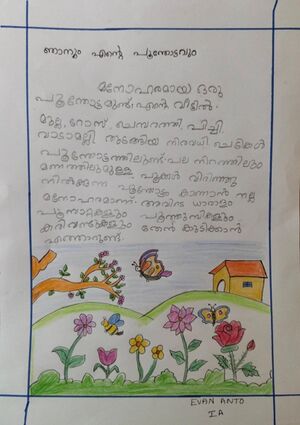 ഞാനും എന്റെ പൂന്തോട്ടവും
മനോഹരമായ ഒരു
പൂന്തോട്ടമുണ്ട് എന്റെ വീട്ടിൽ.
മുല്ല, റോസ്, ചെമ്പരത്തി, പിച്ചി
വാടാമല്ലി തുടങ്ങിയ നിരവധി ചെടികൾ
പൂന്തോട്ടത്തിലുണ്ട്. പല നിറത്തിലും
മണത്തിലുമുള്ള പൂക്കൾ വിരിഞ്ഞു
നിൽക്കുന്ന പൂന്തോട്ടം കാണാൻ നല്ല
മനോഹരമാണ്. അവിടെ ധാരാളം
പൂമ്പാറ്റകളും പൂത്തുമ്പികളും
കരിവണ്ടുകളും തേൻ കുടിക്കാൻ
എത്താറുണ്ട്.
EVAN ANTO
I A